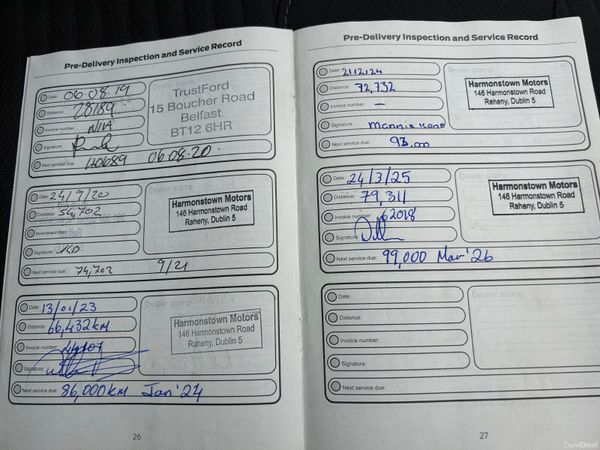 Pre-Delivery Inspection and Service Record
Date: 06.08.19
Distance: 28189
Invoice number: N/A
Signature:
Next service due: 40689 06.08.20.
TrustFord
15 Boucher Road
Belfast
BT12 6HR
Date: 24/9/20
Distance: 54,702
Invoice number:
Signature:
Next service due: 74,702 9/21
Dealer stamp
Harmonstown Motors
146 Harmonstown Road
Raheny, Dublin 5
Date: 13/01/23
Distance: 66,432km
Invoice number:
Signature:
Next service due: 86,000km Jan '24
Dealer stamp
Harmonstown Motors
146 Harmonstown Road
Raheny, Dublin 5
26
Pre-Delivery Inspection and Service Record
Date: 2/12/24
Distance: 72,732
Invoice number: —
Signature: Mannix Kane
Next service due: 93,000
Harmonstown Motors
146 Harmonstown Road
Raheny, Dublin 5
Date: 24/3/25
Distance: 79,311
Invoice number: 62018
Signature:
Next service due: 99,000 Mar '26
Harmonstown Motors
146 Harmonstown Road
Raheny, Dublin 5
Date:
Distance:
Invoice number:
Signature:
Next service due:
Dealer stamp
27
DoneDeal